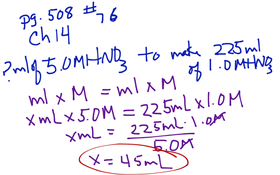 pg. 508 # 76
Ch 14
? ml of 5.0M HNO3 to make 225ml
of 1.0M HNO3
ml x M = ml x M
x mL x 5.0M = 225mL x 1.0M
x mL = 225mL · 1.0M
5.0M
x = 45mL